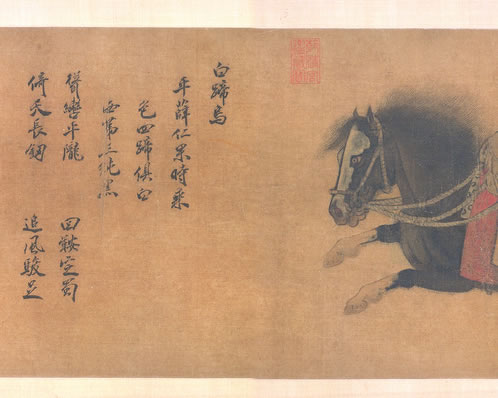 倚天長劔 追風駿足
聳轡平隴 回鞍定蜀
西第三純黑
色四蹄俱白
平薛仁果時乘
白蹄烏